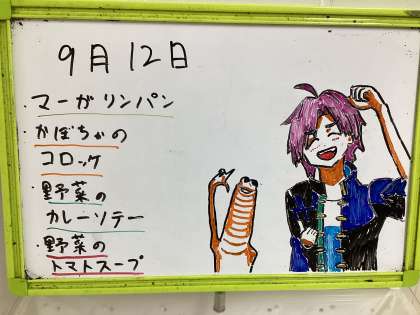 9月12日
・マーガリンパン
・かぼちゃの
コロッケ
・野菜の
カレーソテー
・野菜の
トマトスープ